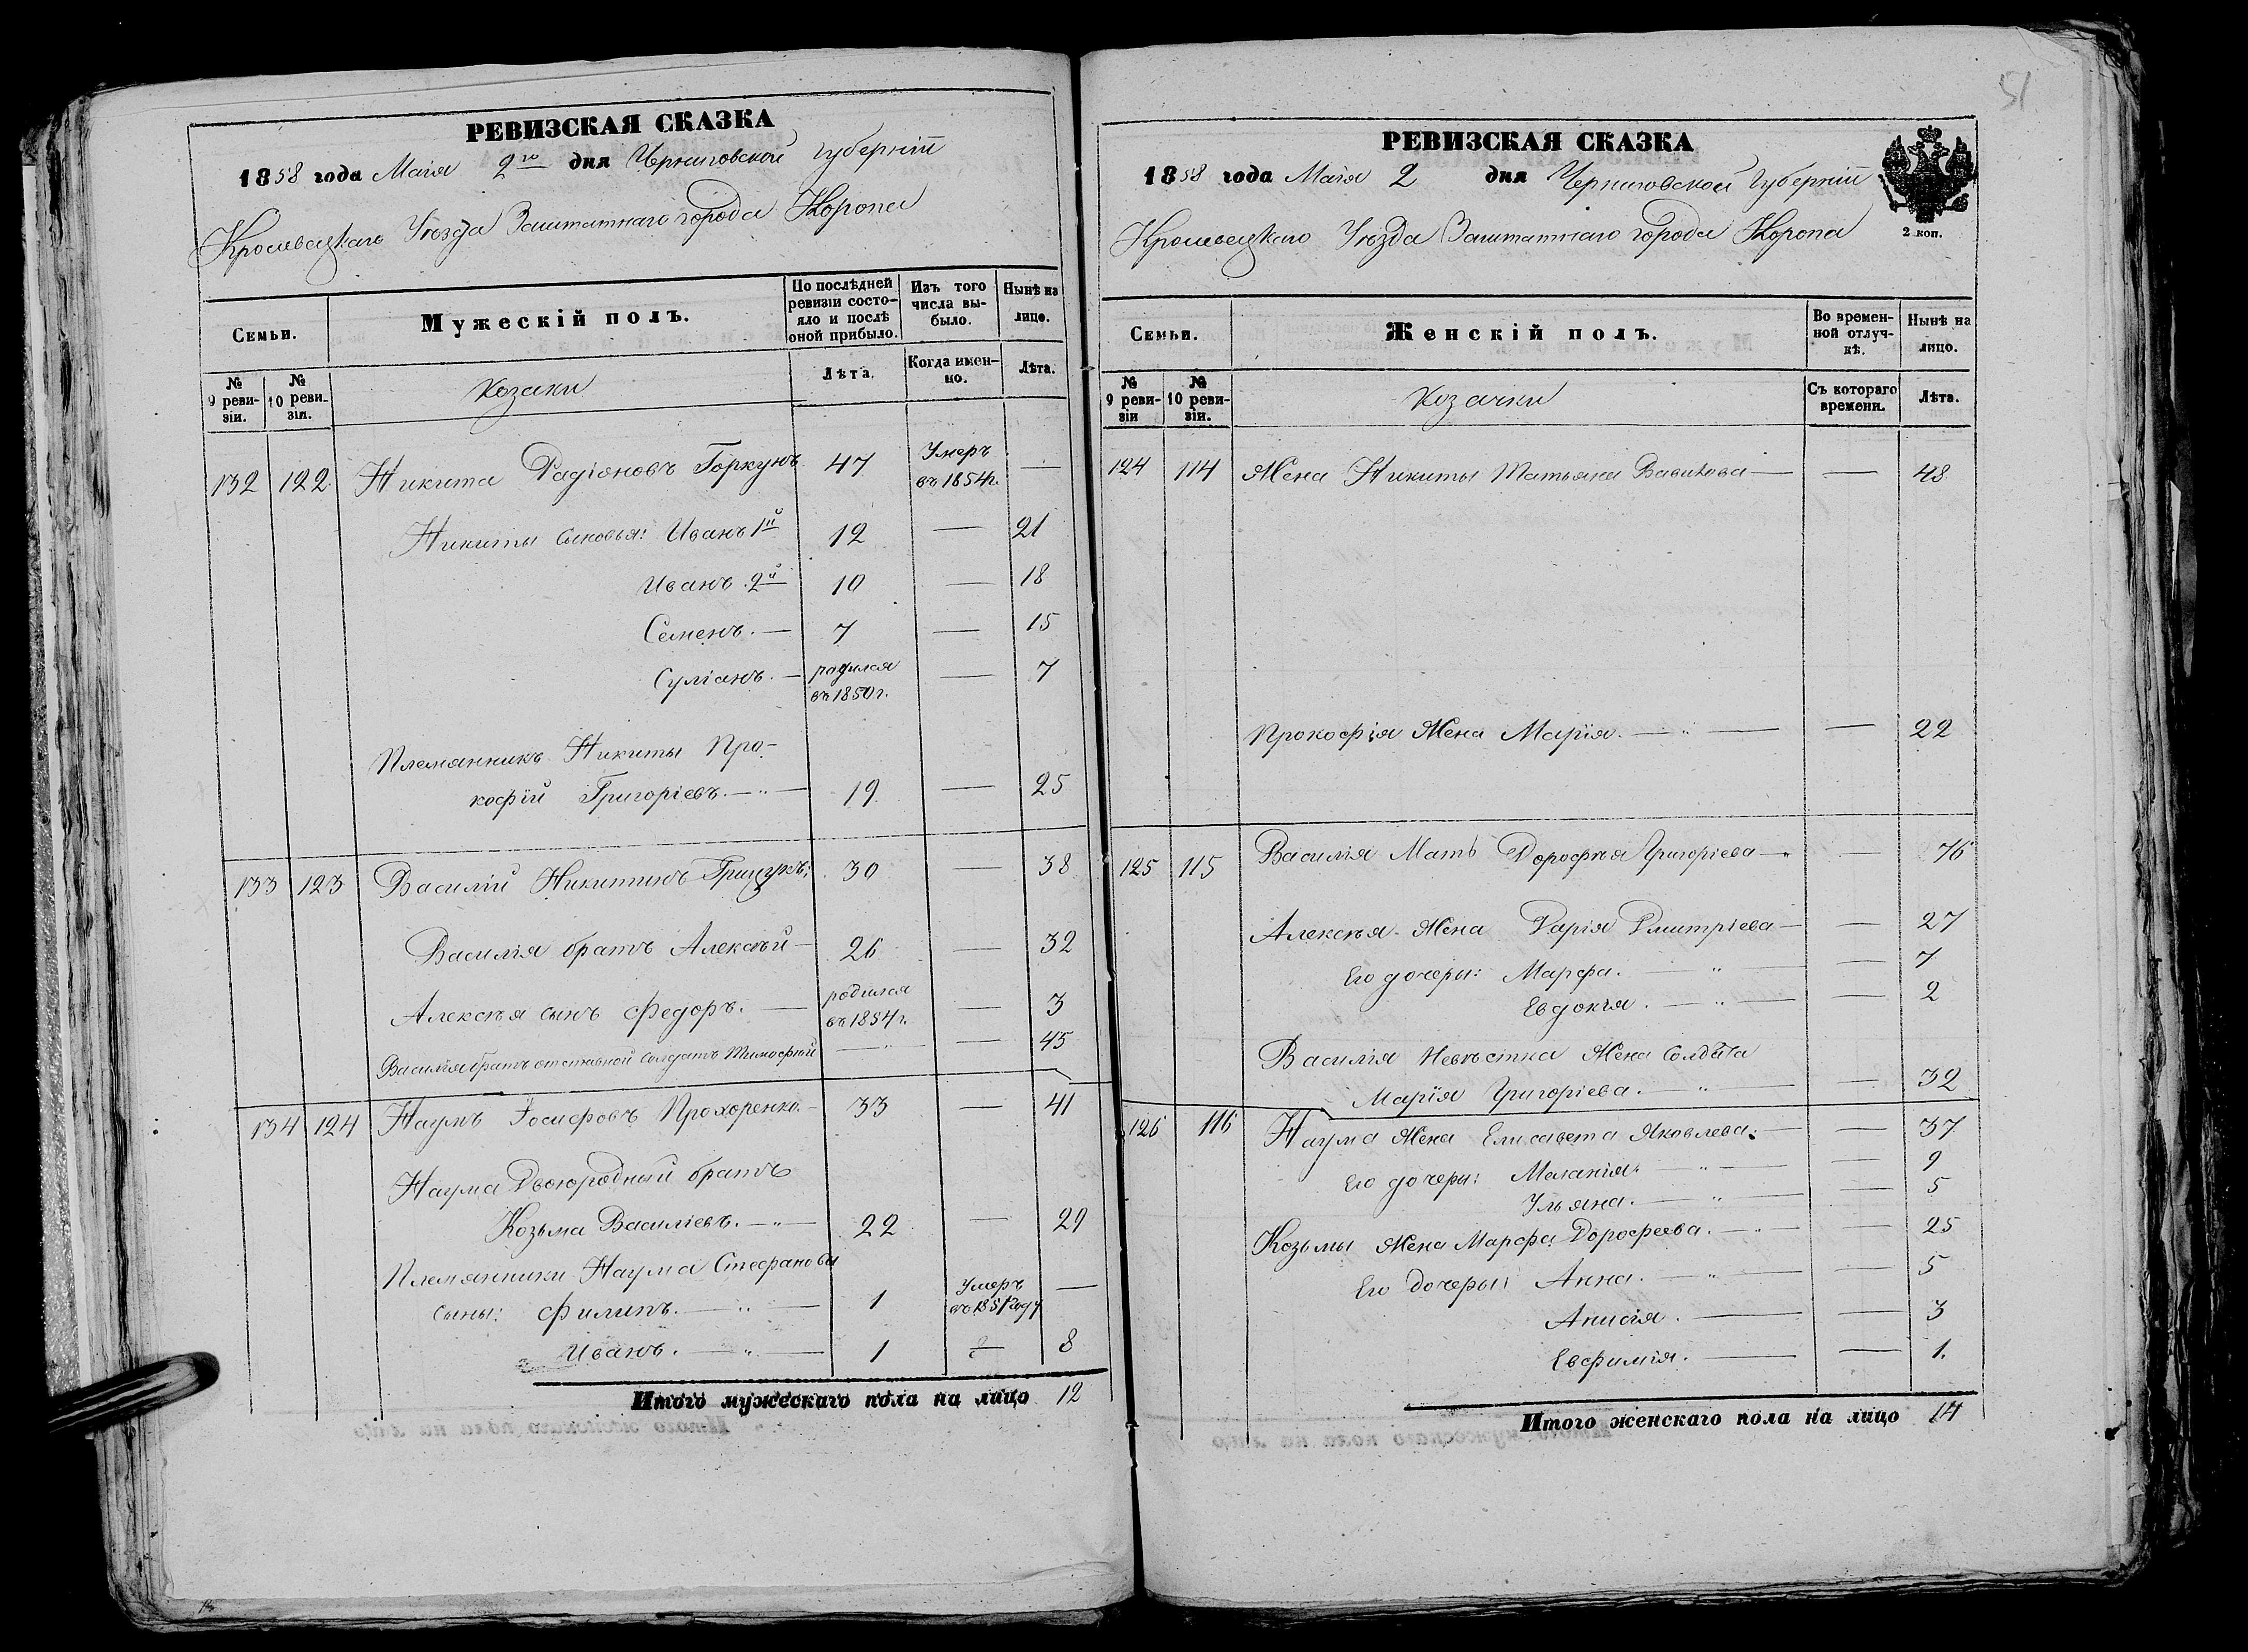 51
РЕВИЗСКАЯ СКАЗКА
1858 года Маія 2го дня Черниговской губерніи
Кролевецкаго Уѣзда Заштатнаго города Коропа
Семьи.
Мужескій полъ.
По послѣдней ревизіи состояло и послѣ оной прибыло.
Изъ того числа выбыло.
Нынѣ на лицо.
№ 9 ревизіи.
№ 10 ревизіи.
Козаки
Лѣта.
Когда именно.
Лѣта.
132 122 Никита Радіоновъ Горкунъ 47 Умеръ въ 1854 г. —
Никиты сыновья: Иванъ 1й 12 — 21
Иванъ 2й 10 — 18
Семенъ. — 7 — 15
Суліанъ. — родился въ 1850 г. — 7
Племянникъ Никиты Про-
кофій Григоріевъ. — " — 19 — 25
133 123 Василій Никитинъ 30 — 38
Василія братъ Алексѣй — 26 — 32
Алексѣя сынъ Федоръ. — родился въ 1854 г. — 3
Василія братъ отставной солдатъ Тимофѣй — " — 45
134 124 Наумъ Іосифовъ Прохоренко — 33 — 41
Наума Двоюродный братъ
Козьма Василіевъ. — " — 22 — 29
Племянники Наума Стефановы
сыны: Филипъ. — " — 1 Умеръ въ 1851 году —
Иванъ. — " — 1 — 8
Итого мужескаго пола на лицо 12
РЕВИЗСКАЯ СКАЗКА
1858 года Маія 2 дня Черниговской Губерніи
Кролевецкаго Уѣзда Заштатнаго города Коропа
2 коп.
Семьи.
Женскій полъ.
Во временной отлучкѣ.
Нынѣ на лицо.
№ 9 ревизіи
№ 10 ревизіи.
Козачки
Съ котораго времени.
Лѣта.
124 114 Жена Никиты Татьяна — — 48
Прокофія Жена Марія. — " — — 22
125 115 Василія Мать Дорофѣя Григоріева — " — 76
Алексѣя Жена Дарія Дмитріева — — 27
Его дочеры: Марфа. — " — — 7
Евдокія. — " — — 2
Василія Невѣстка Жена Солдата
Марія Григоріева. — " — — 32
126 116 Наума Жена Елисавета Яковлева: — — 37
Его дочеры: Меланія. — " — — 9
Ульяна. — " — — 5
Козьмы Жена Марфа Дорофеева. — " — 25
Его Дочеры: Анна. — " — — 5
Анисія. — — 3
Евфимія. — — 1.
Итого женскаго пола на лицо 14